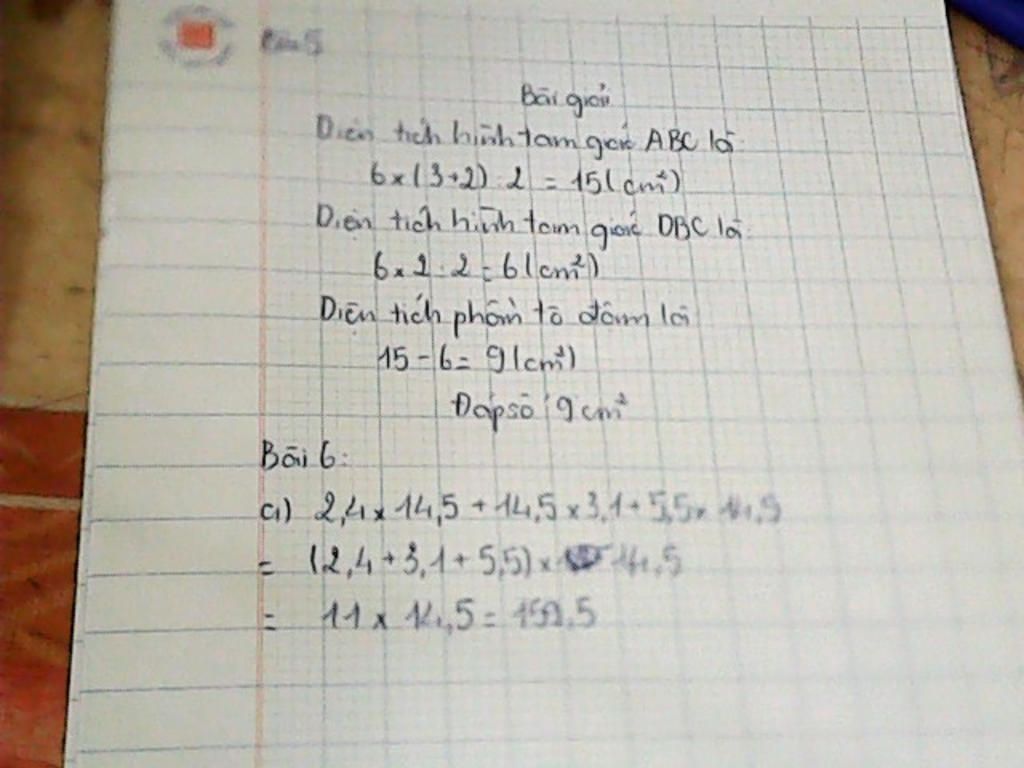 Bài 5
Bài giải
Diện tích hình tam giác ABC là:
6 x (3+2) : 2 = 15 (cm²)
Diện tích hình tam giác DBC là:
6 x 2 : 2 = 6 (cm²)
Diện tích phần tô đậm là
15 - 6 = 9 (cm²)
Đáp số : 9 cm²
Bài 6:
a) 2,4 x 14,5 + 14,5 x 3,1 + 5,5 x 14,5
= (2,4 + 3,1 + 5,5) x 14,5
= 11 x 14,5 = 159,5